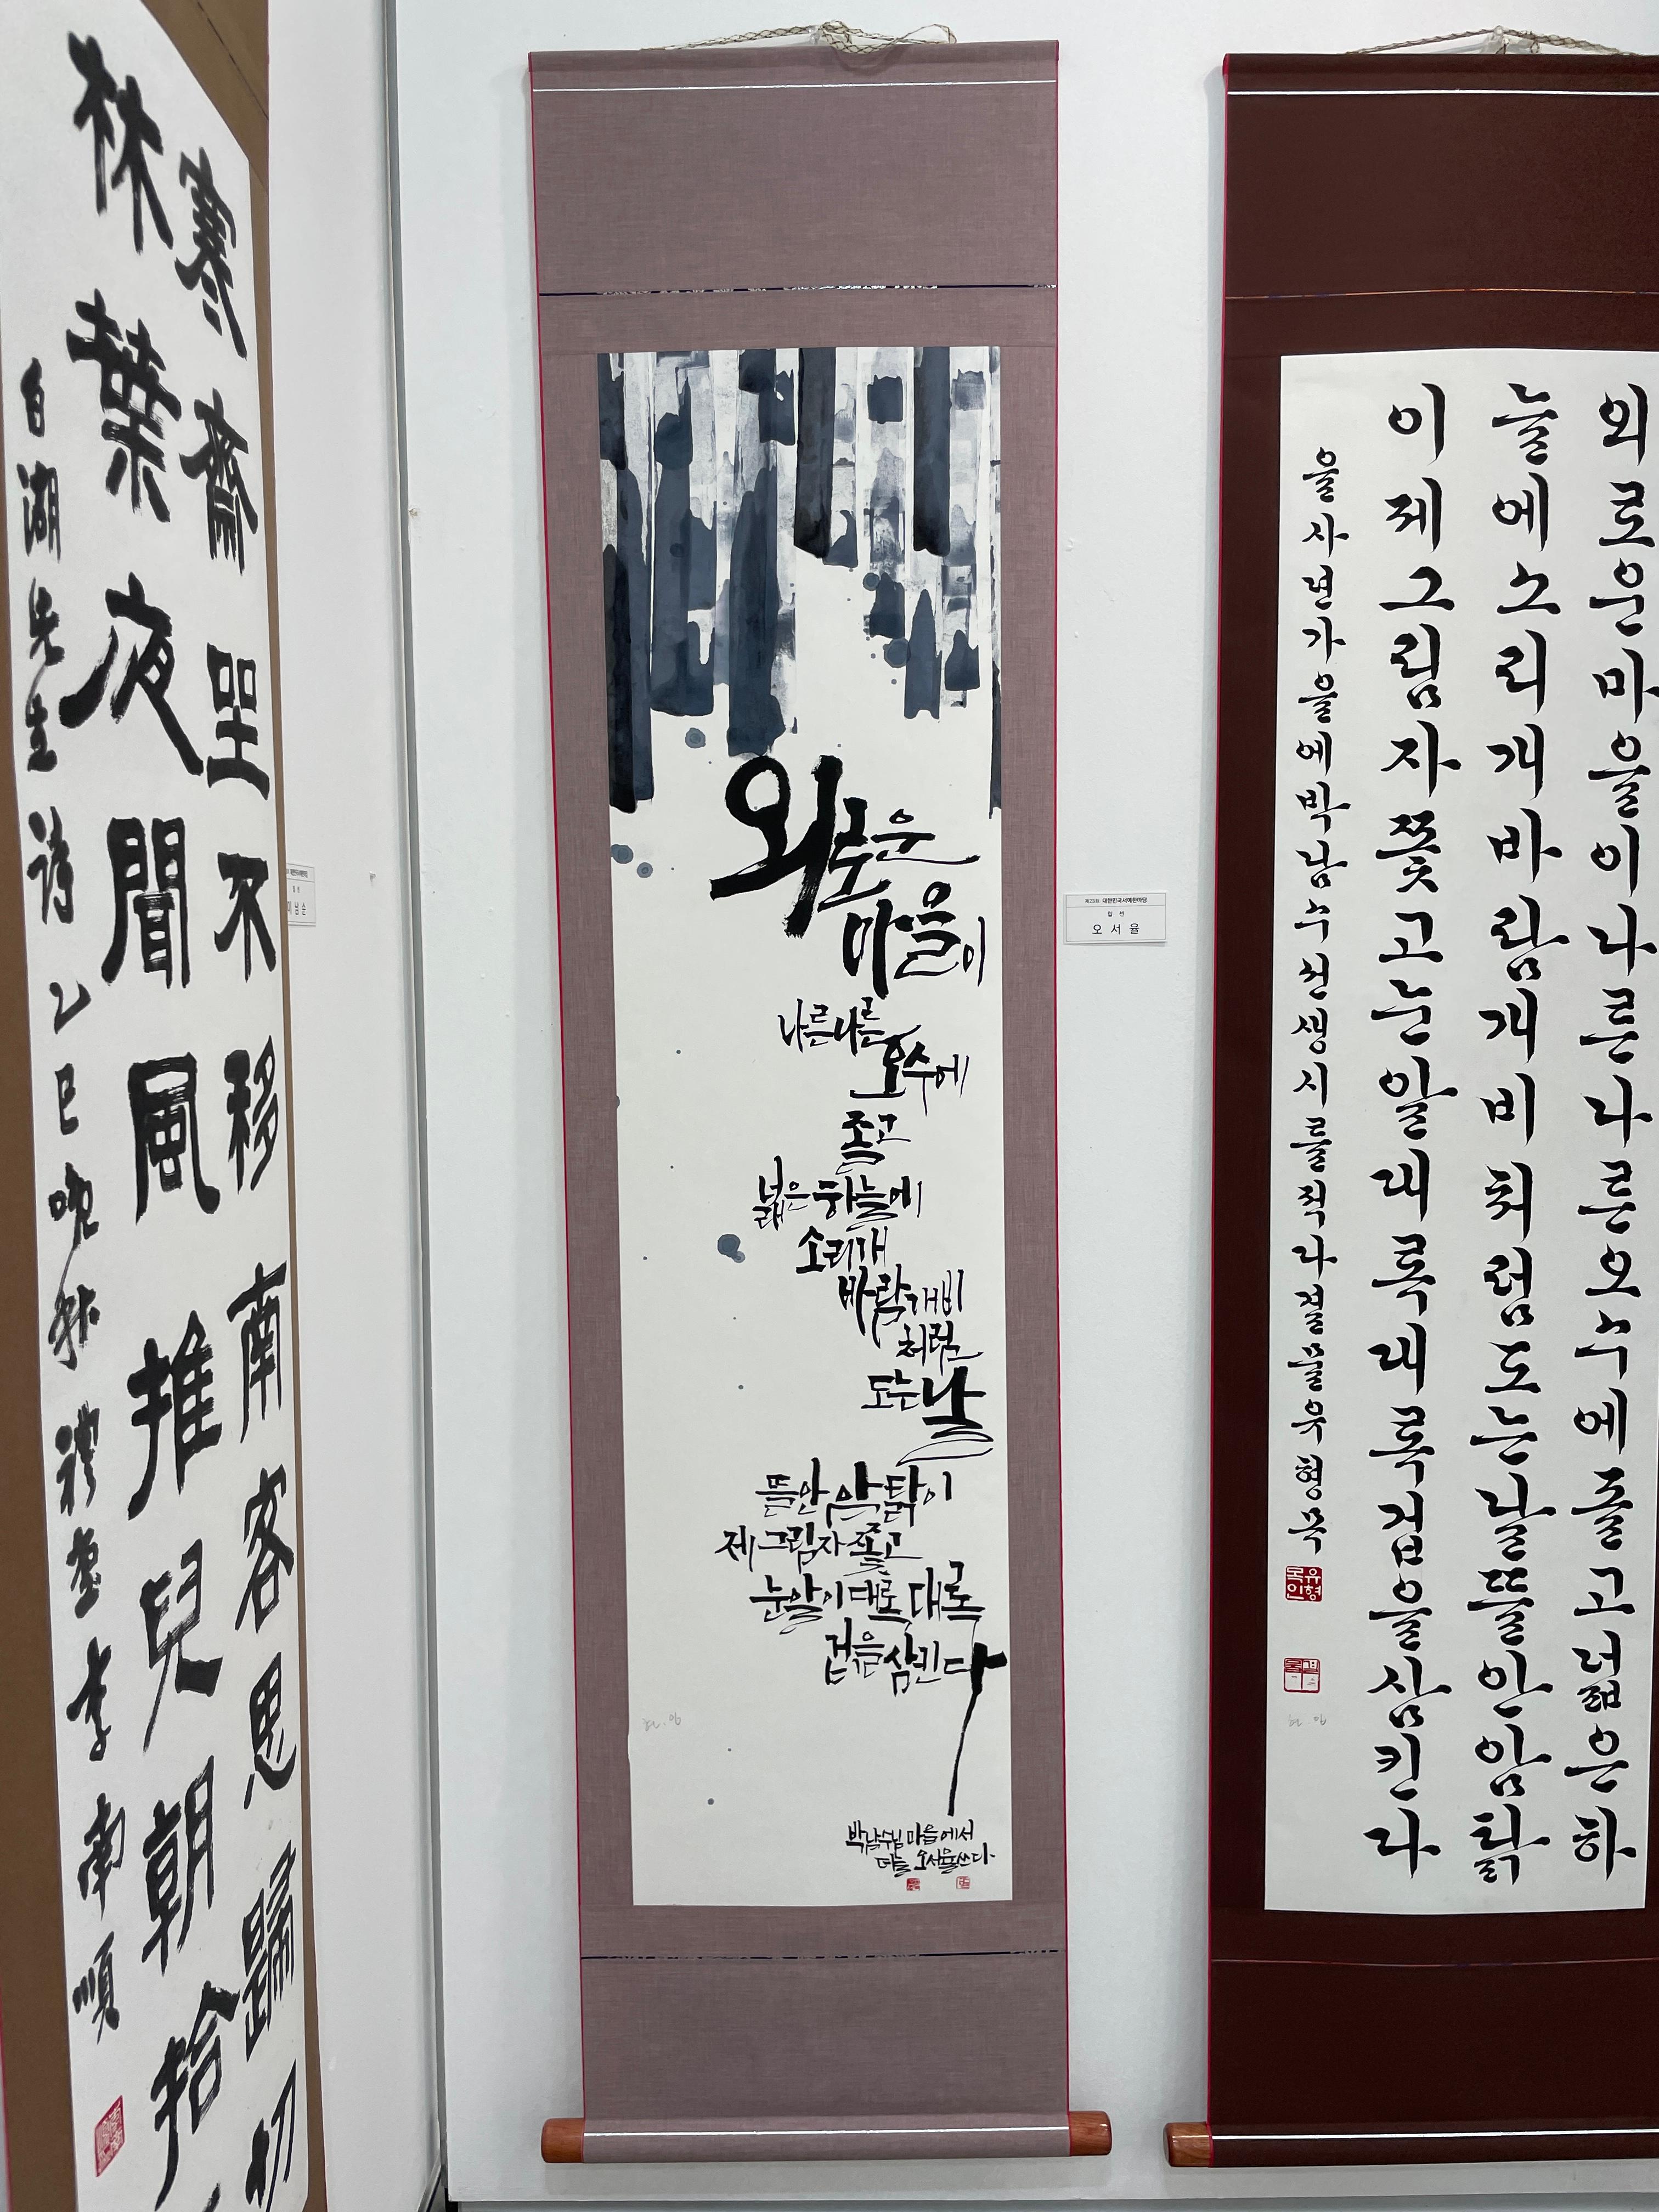 寒齋坐不移南客思歸切
林葉夜聞風推兒朝拾
白湖先生詩 乙巳晩秋 李南順
입 선
이 남 순
외로운
마을이
나른나른
오수에
졸고
넓은 하늘에
소리개
바람개비
처럼
도는 날
뜰안 암탉이
제 그림자 쫓고
눈알이 대록 대록
겁을 삼킨다
박남수님 마을에서
오서율쓰다
제23회 대한민국서예한마당
입 선
오 서 율
외로운마을이나른나른오수에졸고넓은하
늘에소리개바람개비처럼도는날뜰안암탉
이제그림자쫓고눈알대록대록겁을삼킨다
을사년가을에박남수선생시를적다결믈유형목
유형목인